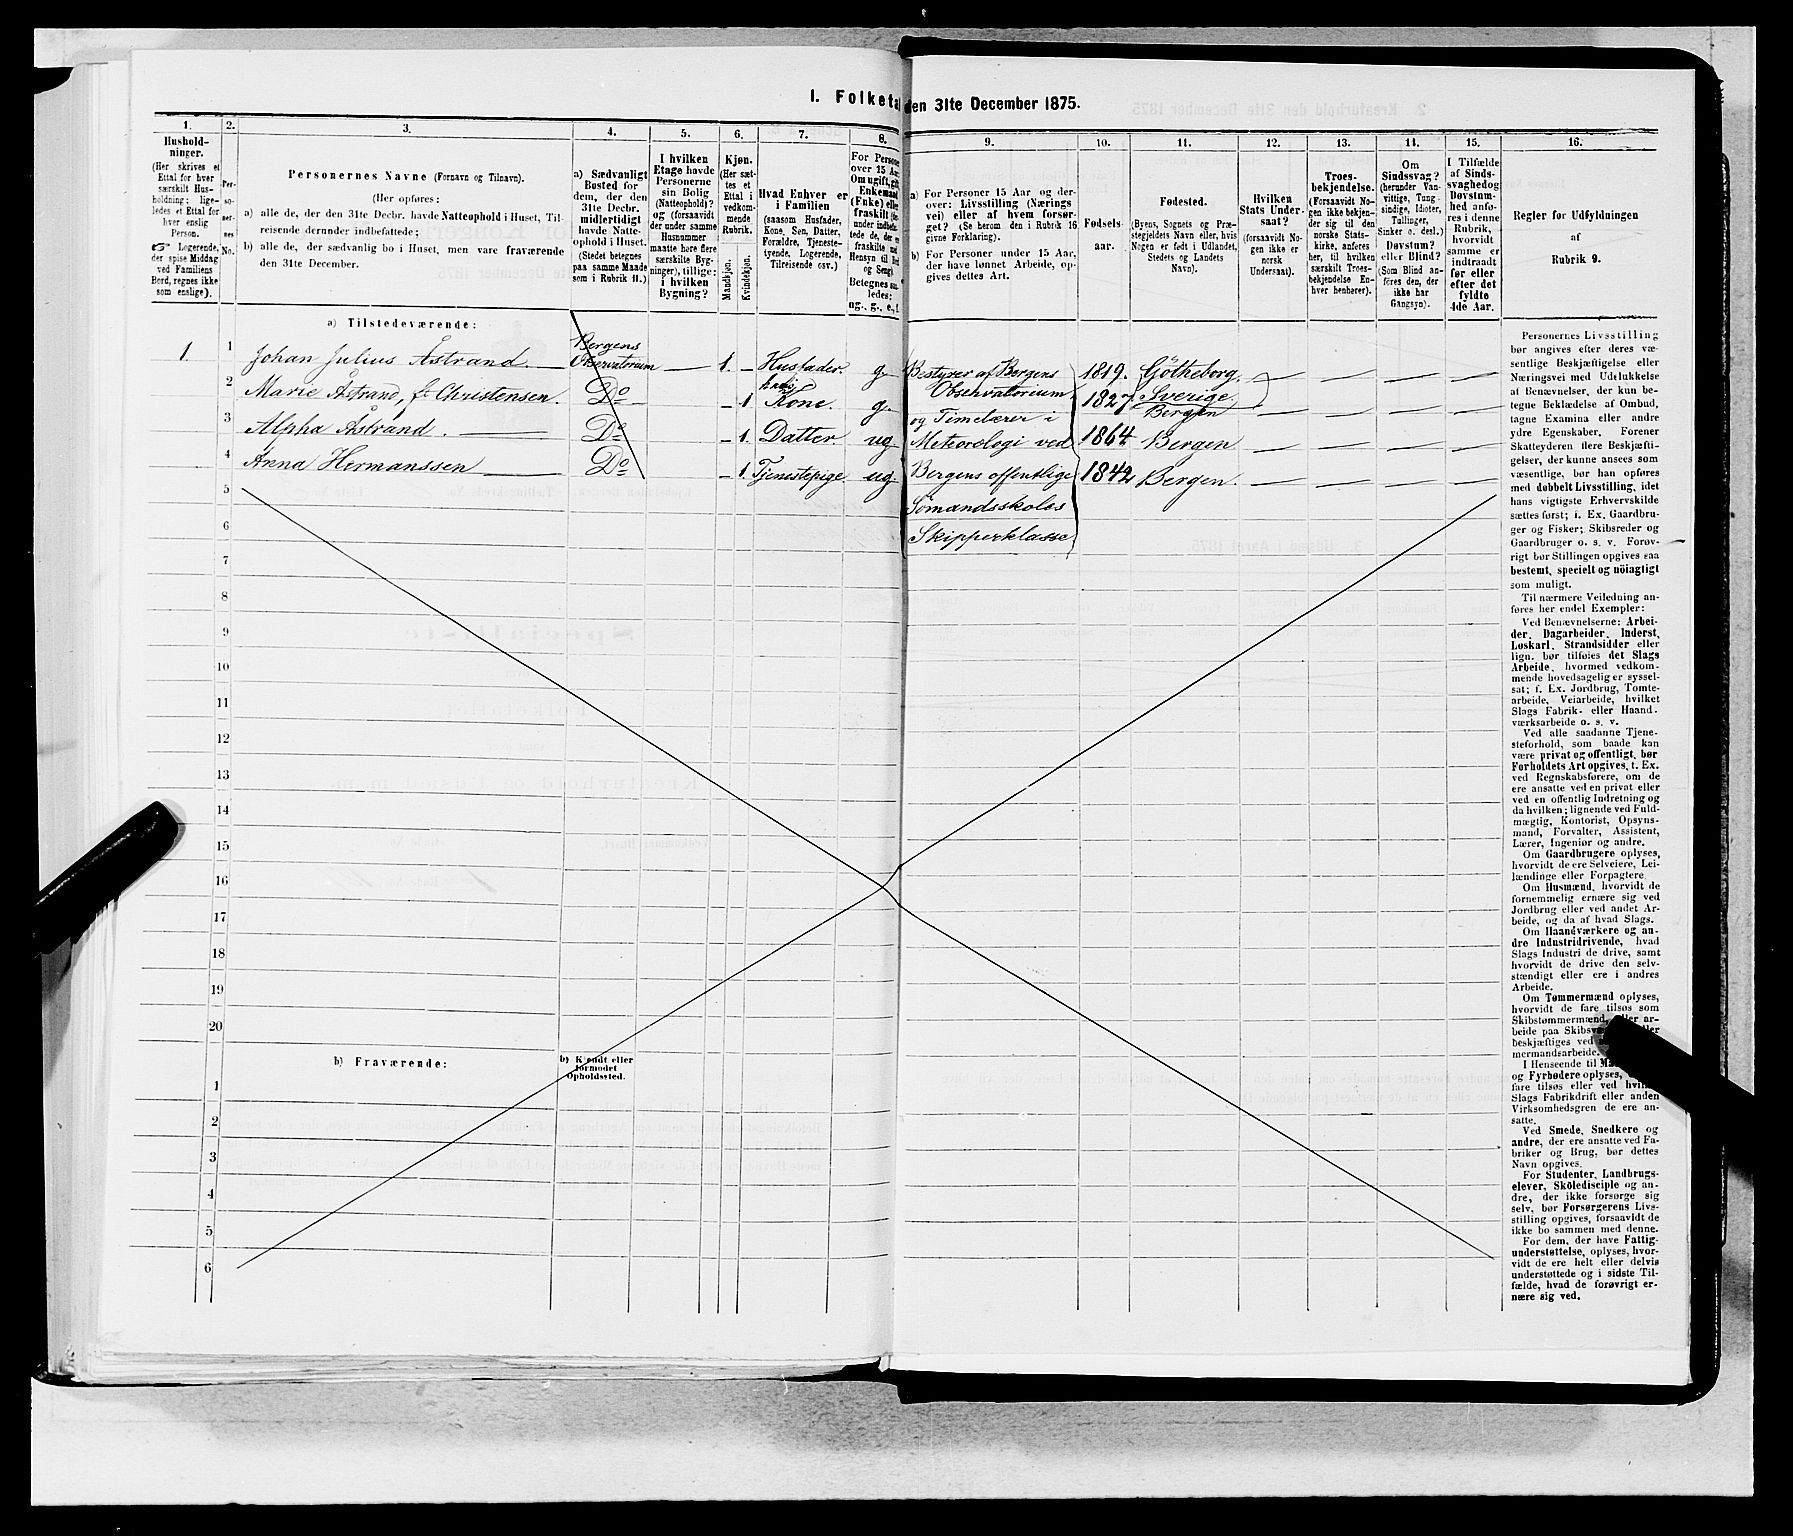 I. Folketal den 31te December 1875.
1. 2. 3. 4. 5. 6. 7. 8. 9. 10. 11. 12. 13. 14. 15. 16.
Hushold-
ninger.
(Her skrives et
Ettal for hver
særskilt Hus-
holdning; lige-
ledes et Ettal for
hver enslig
Person.
☞ Logerende,
der spise Middag
ved Familiens
Bord, regnes ikke
som enslige).
Per-
so-
ner-
nes
No.
Personernes Navne (Fornavn og Tilnavn).
(Her opføres:
a) alle de, der den 31te Decbr. havde Natteophold i Huset, Til-
reisende derunder indbefattede;
b) alle de, der sædvanlig bo i Huset, men vare fraværende
den 31te December.
a) Sædvanligt
Bosted for
dem, der den
31te Decbr.
midlertidigt
havde Natte-
ophold i Huset.
(Stedet betegnes
paa samme Maade
som i Rubrik 11.)
I hvilken
Etage havde
Personerne
sin Bolig
(Natteophold)?
og (forsaavidt
der under samme
Husnummer
maatte høre flere
særskilte Byg-
ninger), tillige:
i hvilken
Bygning?
Kjøn.
(Her sæt-
tes et
Ettal i
vedkom-
mende
Rubrik.
Mandkjøn.
Kvindekjøn.
Hvad Enhver er
i Familien
(saasom Husfader,
Kone, Søn, Datter,
Forældre, Tjeneste-
tyende, Logerende,
Tilreisende osv.)
For Personer
over 15 Aar:
Om ugift, gift,
Enkemand
(Enke) eller
fraskilt
Betegnes saa-
ledes:
ug., g., e., f.
a) For Personer 15 Aar og der-
over: Livsstilling (Nærings
vei) eller af hvem forsør-
get? (Se herom den i Rubrik 16
givne Forklaring).
b) For Personer under 15 Aar,
der have lønnet Arbeide, op-
gives dettes Art.
Fødsels-
aar.
Fødested.
(Byens, Sognets og Præ-
stegjeldets Navn eller, hvis
Nogen er født i Udlandet,
Stedets og Landets
Navn).
Hvilken
Stats Under-
saat?
(forsaavidt No-
gen ikke er
norsk
Undersaat).
Troes-
bekjendelse.
(Forsaavidt No-
gen ikke bekjen-
der sig til den
norske Stats-
kirke, anføres
her, til hvilken
særskilt Troes-
bekjendelse En-
hver henhører).
Om
Sindssvag?
(herunder Van-
vittige, Tung-
sindige, Idioter,
Tullinger,
Sinker o. desl.)
Døvstum?
eller Blind?
(Som Blind an-
føres den, der
ikke har
Gangsyn).
I Tilfælde
af Sinds-
svaghed og
Døvstum-
hed anfø-
res i denne
Rubrik,
hvorvidt
samme er
indtraadt
før eller
efter det
fyldte
4de Aar.
Regler for Udfyldningen
af
Rubrik 9.
a) Tilstedeværende:
1. 1 Johan Julius Åstrand. Bergens Observatorium 1. – Husfader g. 1819. Götheborg, Sverige
2 Marie Åstrand, f. Christensen. Do – 1 Kone. g. 1827 Bergen
3 Alpha Åstrand. Do – 1. Datter ug 1864 Bergen
4 Anna Hermanssen Do – 1. Tjenestepige. ug. 1842 Bergen.
Bestyrer af Bergens
Observatorium,
og Timelærer i
Meteorologi ved
Bergens offentlige
Sømandsskoles
Skipperklasse
5
6
7
8
9
10
11
12
13
14
15
16
17
18
19
20
b) Fraværende:
b) Kjendt eller
formodet
Opholdssted.
1
2
3
4
5
6
Personernes Livsstilling
bør angives efter deres væ-
sentlige Beskjæftigelse eller
Næringsvei med Udelukkelse
af Benævnelser, der kun be-
tegne Beklædelse af Ombud,
tagne Examina eller andre
ydre Egenskaber. Forener
Skatteyderen flere Beskjæfti-
gelser, der kunne ansees som
væsentlige, bør han opføres
med dobbelt Livsstilling, idet
hans vigtigste Erhvervskilde
sættes først; f. Ex. Gaardbru-
ger og Fisker; Skibsreder og
Gaardbruger o. s. v. Forøv-
rigt bør Stillingen opgives saa
bestemt, specielt og nöiagtigt
som muligt.
Til nærmere Veiledning an-
føres her endel Exempler:
Ved Benævnelserne: Arbei-
der, Dagarbeider, Inderst,
Løskarl, Strandsidder eller
lign. bør tilføies det Slags
Arbeide, hvormed vedkom-
mende hovedsagelig er syssel-
sat; f. Ex. Jordbrug, Tomte-
arbeide, Veiarbeide, hvilket
Slags Fabrik- eller Haand-
værksarbeide o. s. v.
Ved alle saadanne Tjene-
steforhold, som baade kan
være privat og offentligt, bør
Forholdets Art opgives, f. Ex.
ved Regnskabsførere, om de
ere ansatte ved en privat eller
ved en offentlig Indretning og
da hvilken; lignende ved Fuld-
mægtig, Kontorist, Opsyns-
mand, Forvalter, Assistent,
Lærer, Ingeniør og andre.
Om Gaardbrugere oplyses,
hvorvidt de ere Selveiere, Lei-
lændinge eller Forpagtere.
Om Husmænd, hvorvidt de
fornemmelig ernære sig ved
Jordbrug eller ved andet Ar-
beide, og da af hvad Slags.
Om Haandværkere og an-
dre Industridrivende, hvad
Slags Industri de drive, samt
hvorvidt de drive den selv-
stændigt eller ere i andres
Arbeide.
Om Tømmermænd oplyses,
hvorvidt de fare tilsøs som
Skibstømmermænd, eller ar-
beide paa
beskjæftiges ved
mermandsarbeide.
I Henseende til
og Fyrbødere oplyses,
fare tilsøs eller ved
Slags Fabrikdrift eller anden
Virksomhedsgren de ere an-
satte.
Ved Smede, Snedkere og
andre, der ere ansatte ved Fa-
briker og Brug, bør dettes
Navn opgives.
For Studenter, Landbrugs-
elever, Skoledisciple og an-
dre, der ikke forsørge sig
selv, bør Forsørgerens Livs-
stilling opgives, forsaavidt de
ikke bo sammen med denne.
For dem, der have Fattig-
understøttelse, oplyses, hvor-
vidt de ere helt eller delvis
understøttede og i sidste Til-
fælde, hvad de forøvrigt er-
nære sig ved.